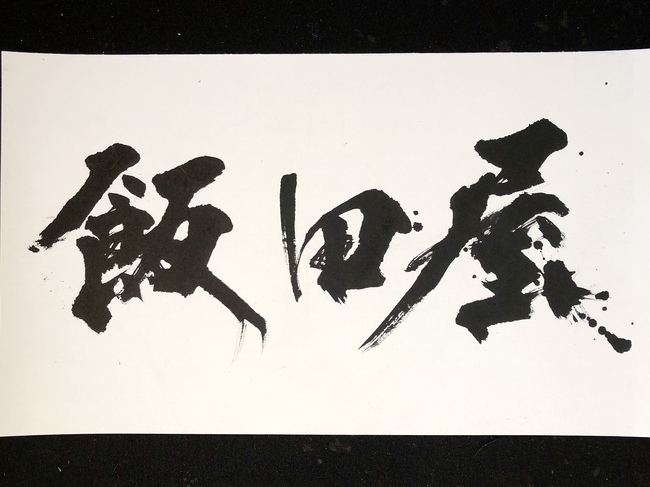 飯田屋